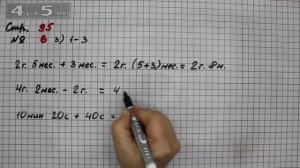 4 A 5
Стр. 95
№ 6 3) 1-3
2г. 5 мес. + 3 мес. = 2г. (5+3)мес. = 2г. 8м.
4г. 2 мес. - 2г. = 4
10 мин 20с + 40с =